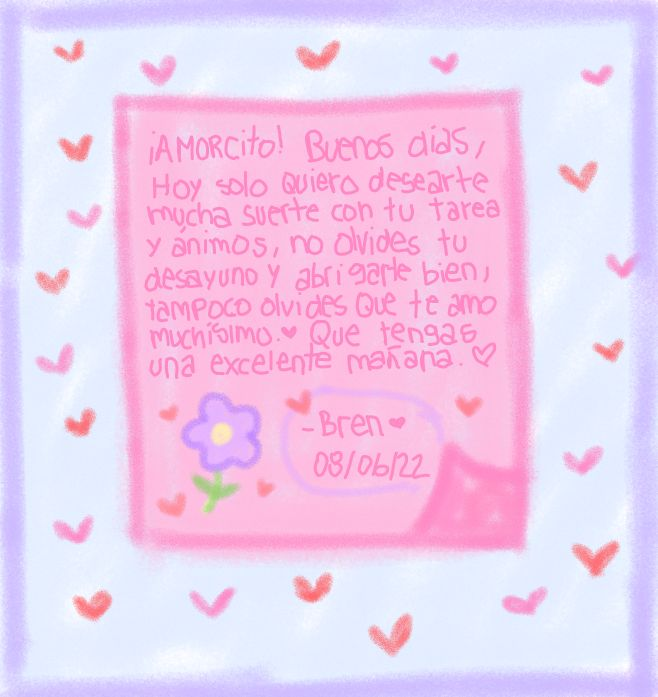 ¡AMORCito! Buenos días,
Hoy solo Quiero desearte
mucha suerte con tu tarea
y ánimos, no olvides tu
desayuno y abrigarte bien,
tampoco olvides Que te amo
muchísimo.♥ Que tengas
una excelente mañana.♡
-Bren♥
08/06/22